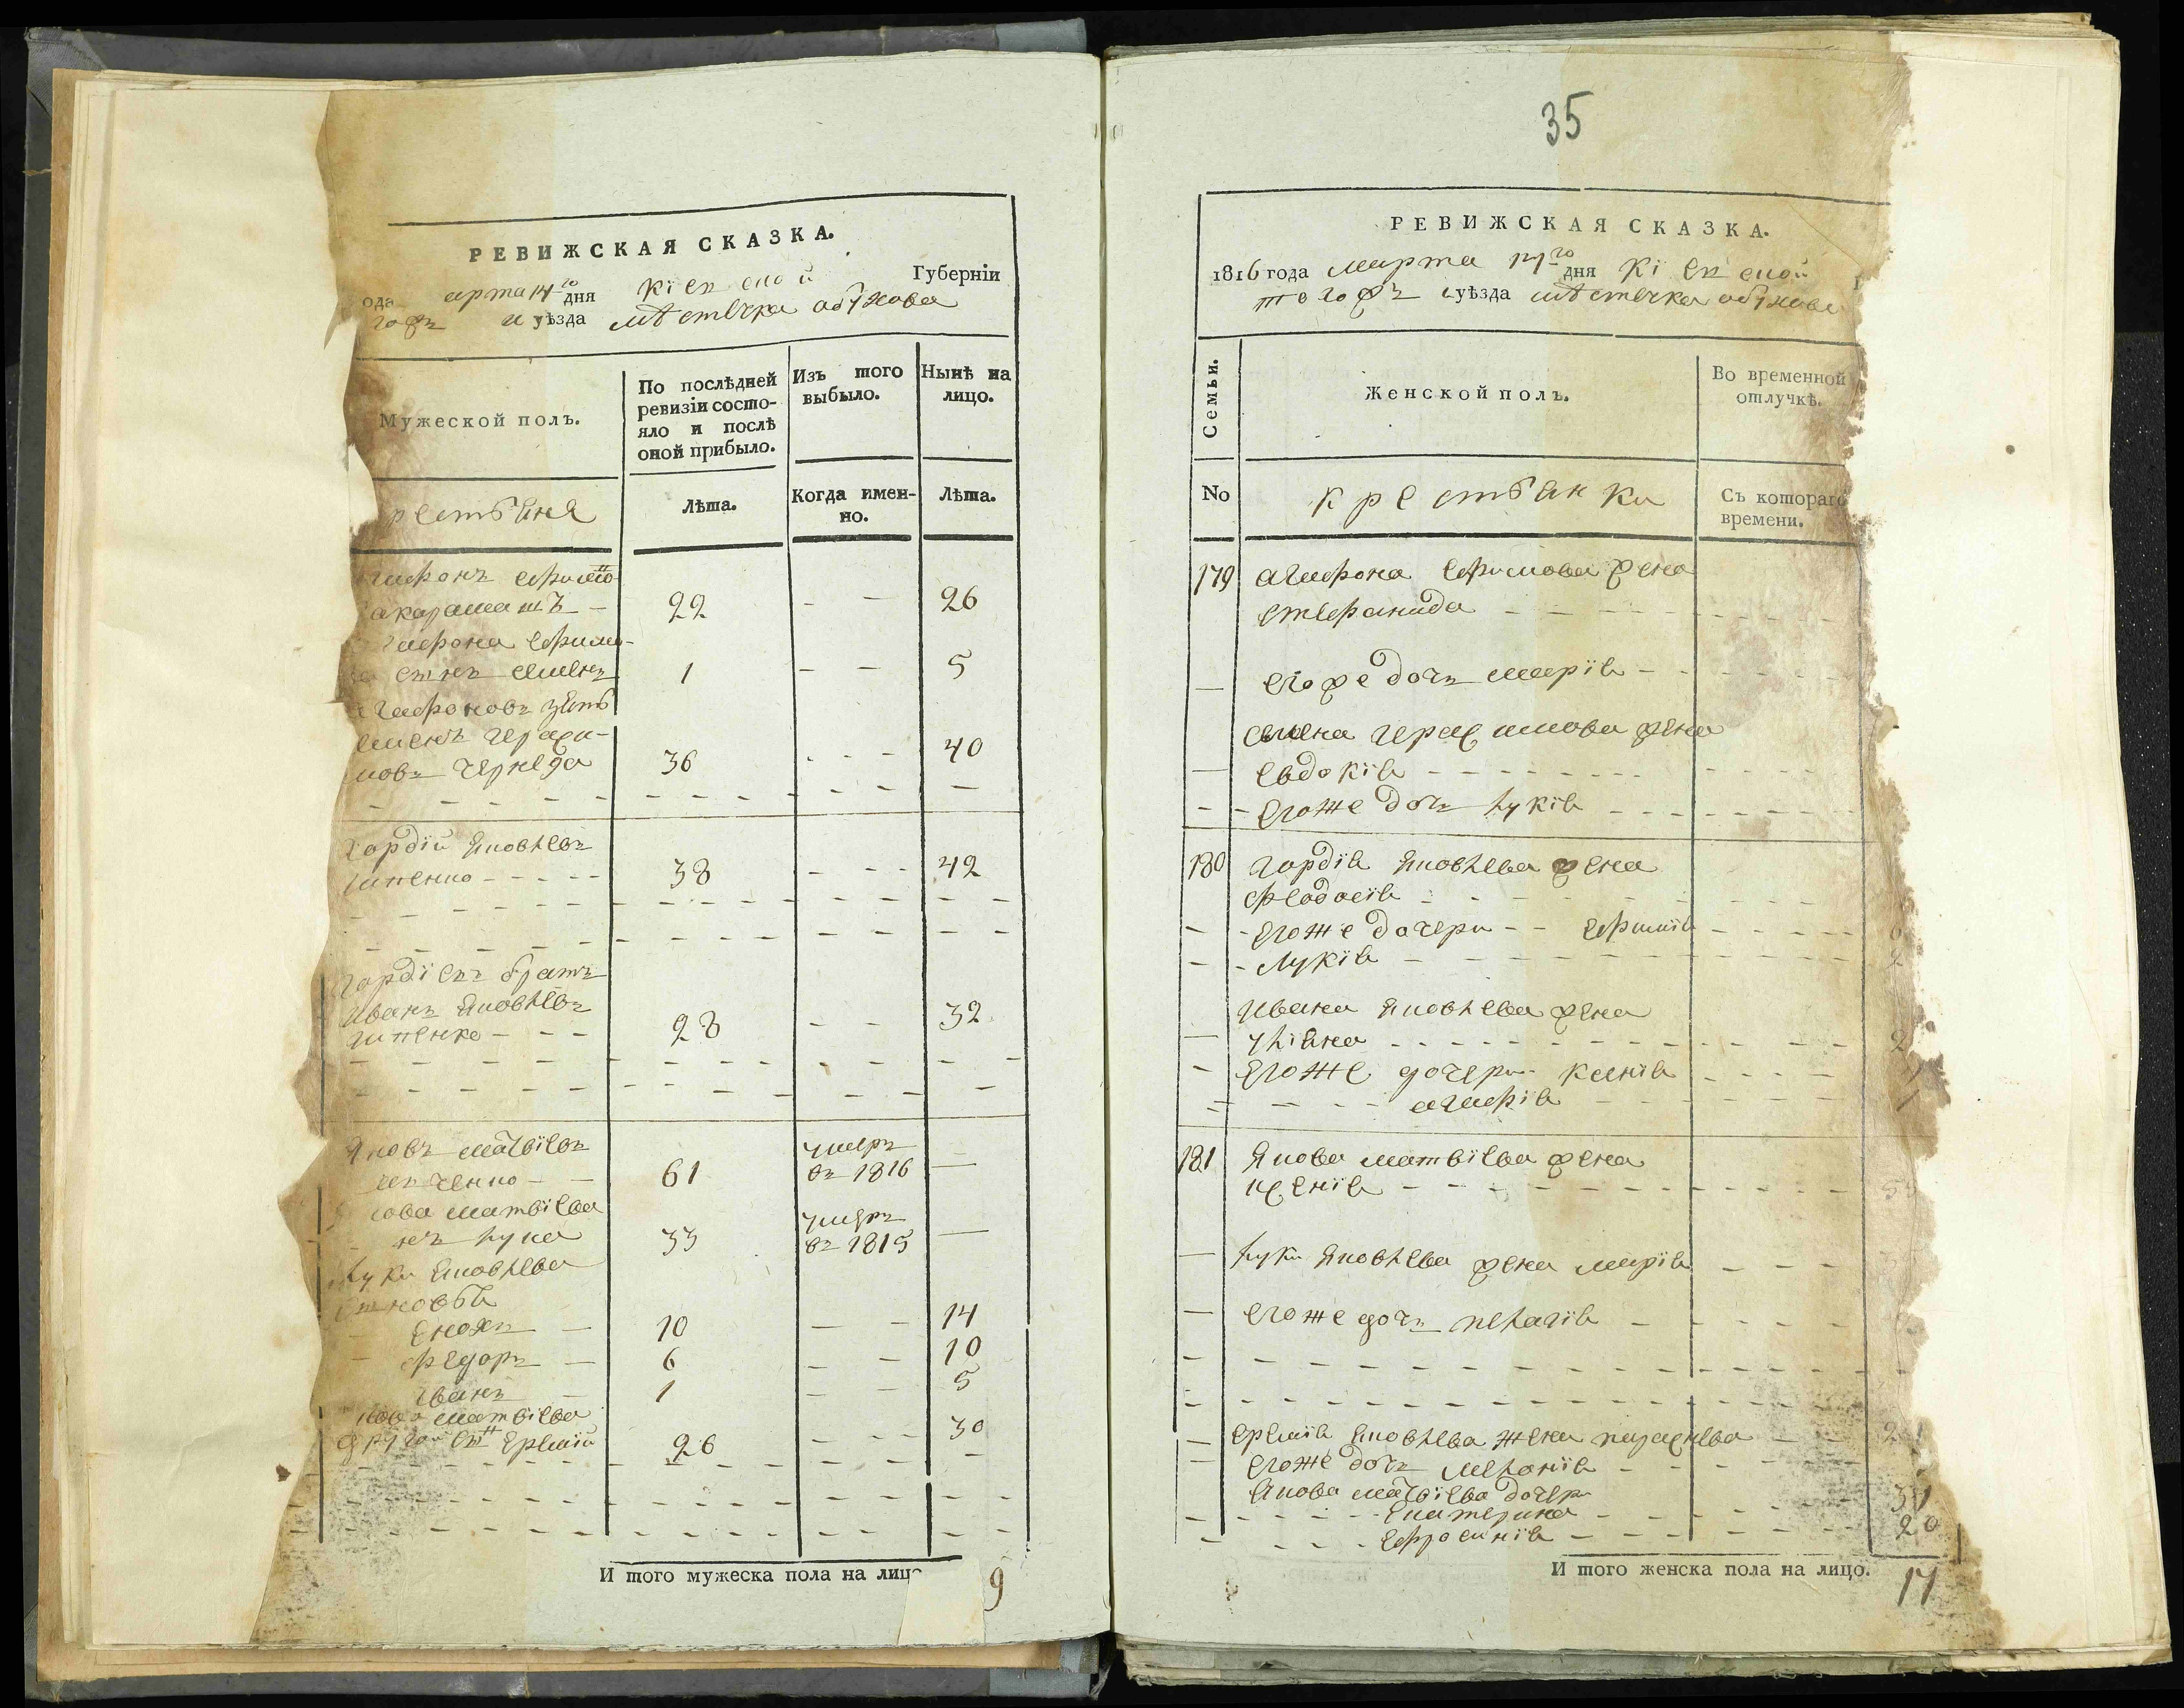 РЕВИЖСКАЯ СКАЗКА.
ода арта 14го дня Кіевской Губерніи
гожъ уѣзда мѣстечка обухова
Мужеской полъ.
По послѣдней
ревизіи состо-
яло и послѣ
оной прибыло.
Изъ того
выбыло.
Нынѣ на
лицо.
рестьяне
Лѣта.
Когда имен-
но.
Лѣта.
гафонъ ефимо
22 - - 26
гафона ефимо-
сынъ семенъ 1 - - 5
гафоновъ зять
семенъ гераси-
мовъ чернега 36 - - - 40
гордій яковлевъ
38 - - - 42
гордіевъ братъ
иванъ яковлевъ
28 - - 32
яковъ матвіевъ
61 умеръ въ 1816 —
кова матвіева
нъ лука 33 умеръ въ 1815 —
луки яковлева
сыновья
10 — - 14
федоръ — 6 - - 10
иванъ 1 - - 5
кова матвіева
другой сынъ еремій 26 - - - 30
И того мужеска пола на лицо 9
35
РЕВИЖСКАЯ СКАЗКА.
1816 года марта 14го дня Кіевской
тогожъ уѣзда мѣстечка обухова
Семьи.
Женской полъ.
Во временной
отлучкѣ.
No
крестьянки
Съ котораго
времени.
179 агафона ефимова жена
стефанида
— егоже дочь марія
семена герасимова жена
— евдокія
- - егоже дочь лукія
180 гордія яковлева жена
феодосія
- - егоже дочери - - ефимія
- - лукія
ивана яковлева жена
— уліяна
- егоже дочери ксенія
агафія
181 якова матвіева жена
ксенія
— луки яковлева жена марія
— егоже дочь пелагія
— еремія яковлева жена параскева
— егоже дочь меланія
якова матвіева дочери
екатерина
ефросинія 20
И того женска пола на лицо. 17